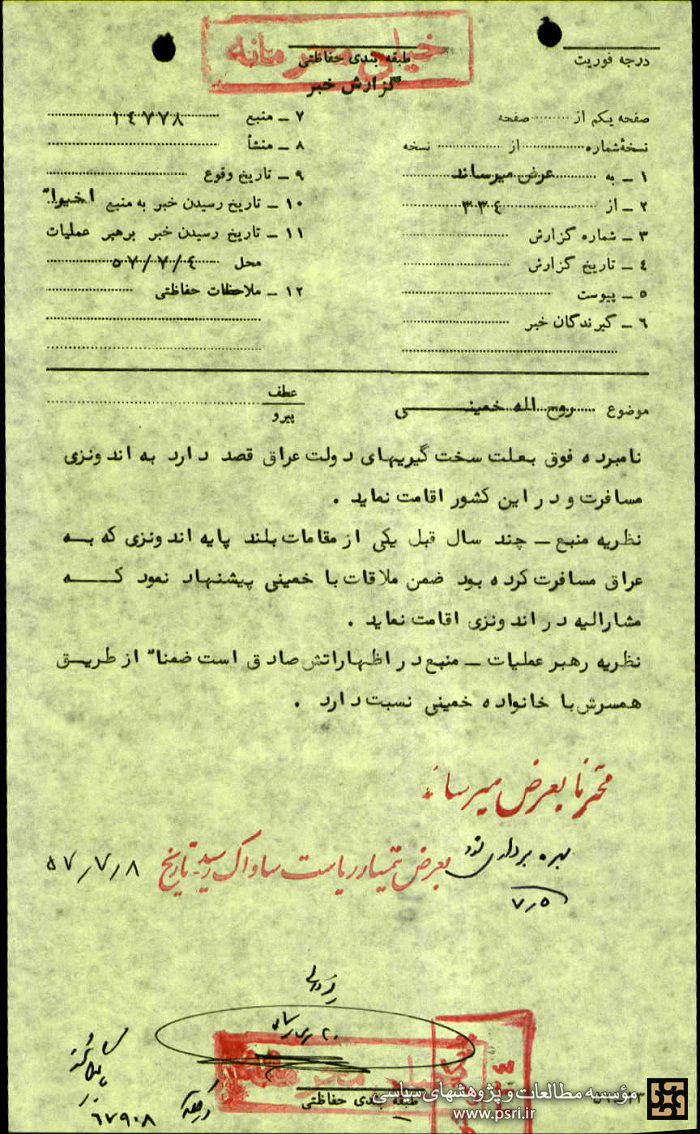 خیلی محرمانه
طبقه بندی حفاظتی
درجه فوریت
گزارش خبر
صفحه یکم از ........ صفحه
نسخهٔ شماره ........ از ........ نسخه
۱ ـ به عرض میرساند
۲ ـ از ۳۳٤
۳ ـ شماره گزارش
٤ ـ تاریخ گزارش
۵ ـ پیوست
۶ ـ گیرندگان خبر
۷ ـ منبع ۱٤۷۷۸
۸ ـ منشأ
۹ ـ تاریخ وقوع
۱۰ ـ تاریخ رسیدن خبر به منبع اخیراً
۱۱ ـ تاریخ رسیدن خبر برهبر عملیات
محل ۵۷/۷/٤
۱۲ ـ ملاحظات حفاظتی
موضوع روح الله خمینی
عطف
پیرو
نامبرده فوق بعلت سخت گیریهای دولت عراق قصد دارد به اندونزی
مسافرت و در این کشور اقامت نماید .
نظریه منبع ـ چند سال قبل یکی از مقامات بلند پایه اندونزی که به
عراق مسافرت کرده بود ضمن ملاقات با خمینی پیشنهاد نمود که
مشارالیه در اندونزی اقامت نماید .
نظریه رهبر عملیات ـ منبع در اظهاراتش صادق است ضمناً از طریق
همسرش با خانواده خمینی نسبت دارد .
محترماً بعرض میرساند
بهره برداری شود
۷/۵
بعرض تیمسار ریاست ساواک رسید تاریخ ۵۷/۷/۸
۶۷۹۰۸
طبقه بندی حفاظتی
مؤسسه مطالعات و پژوهشهای سیاسی
www.psri.ir